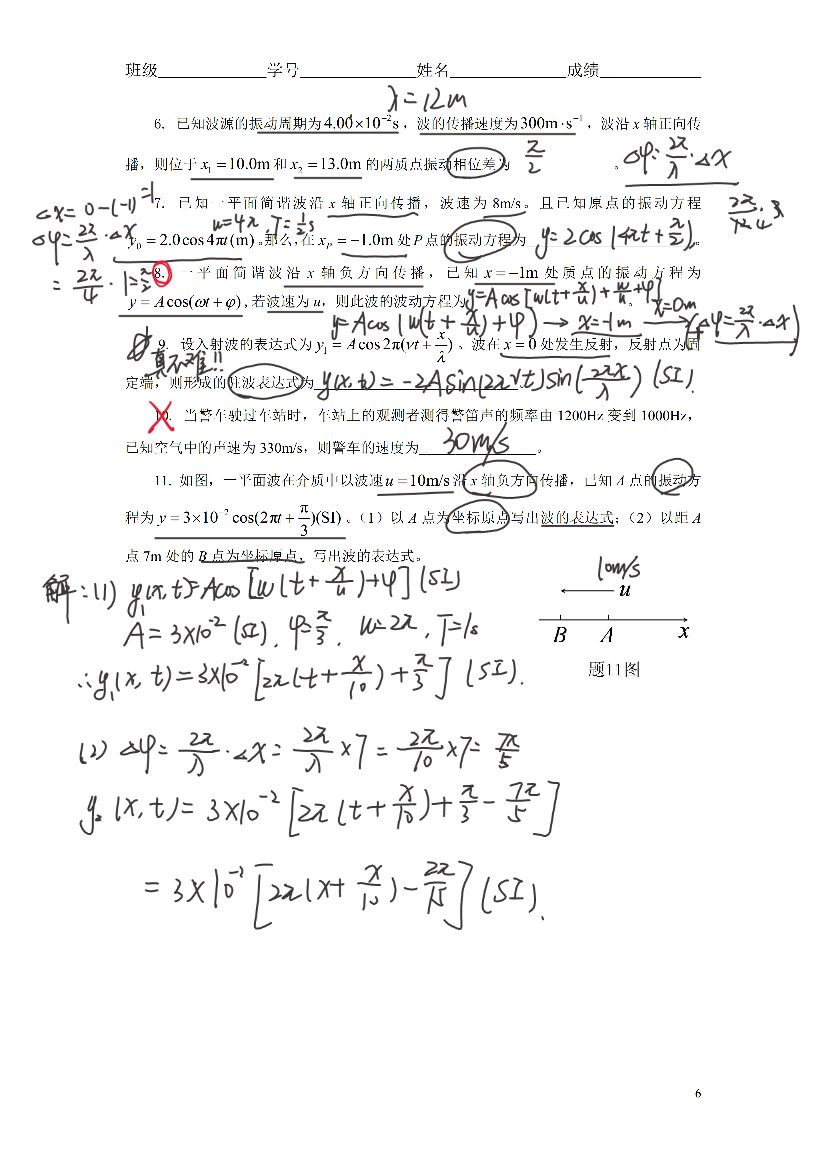 班级 学号 姓名 成绩
λ=12m
6. 已知波源的振动周期为4.00×10⁻²s，波的传播速度为300m·s⁻¹，波沿 x 轴正向传
播，则位于 x₁=10.0m 和 x₂=13.0m 的两质点振动相位差为 π/2 。 Δφ=2π/λ·Δx
Δx=0-(-1)=1
7. 已知一平面简谐波沿 x 轴正向传播，波速为 8m/s。且已知原点的振动方程
Δφ=2π/λ·Δx
u=4π, T=1/2s
y₀=2.0cos4πt(m)。那么，在 x_P=-1.0m 处P点的振动方程为 y=2cos(4πt+π/2)。
=2π/4·1=π/2
8. 一平面简谐波沿 x 轴负方向传播，已知 x=-1m 处质点的振动方程为
y=Acos(ωt+φ)，若波速为 u，则此波的波动方程为 y=Acos[w(t+x/u)+w/u+φ] 。 x=0m
y=Acos(w(t+x/u)+φ)→x=-1m→(Δφ=2π/λ·Δx)
9. 设入射波的表达式为 y₁=Acos2π(νt+x/λ)。波在 x=0 处发生反射，反射点为固
真不难!!
定端，则形成的驻波表达式为 y(x,t)=-2Asin(2πνt)sin(2πx/λ) (SI).
10. 当警车驶过车站时，车站上的观测者测得警笛声的频率由 1200Hz 变到 1000Hz，
已知空气中的声速为 330m/s，则警车的速度为 30m/s 。
11. 如图，一平面波在介质中以波速 u=10m/s 沿 x 轴负方向传播，已知 A 点的振动方
程为 y=3×10⁻²cos(2πt+π/3)(SI)。（1）以 A 点为坐标原点写出波的表达式；（2）以距 A
点 7m 处的 B 点为坐标原点，写出波的表达式。
解:(1) y₁(x,t)=Acos[w(t+x/u)+φ] (SI)
A=3×10⁻² (SI), φ=π/3, w=2π, T=1s
∴y₁(x,t)=3×10⁻²[2π(t+x/10)+π/3] (SI).
10m/s
u
B A x
题11图
(2) Δφ=2π/λ·Δx=2π/λ×7=2π/10×7=7π/5
y₂(x,t)=3×10⁻²[2π(t+x/10)+π/3-7π/5]
=3×10⁻²[2π(x+x/10)-2π/15] (SI).
6